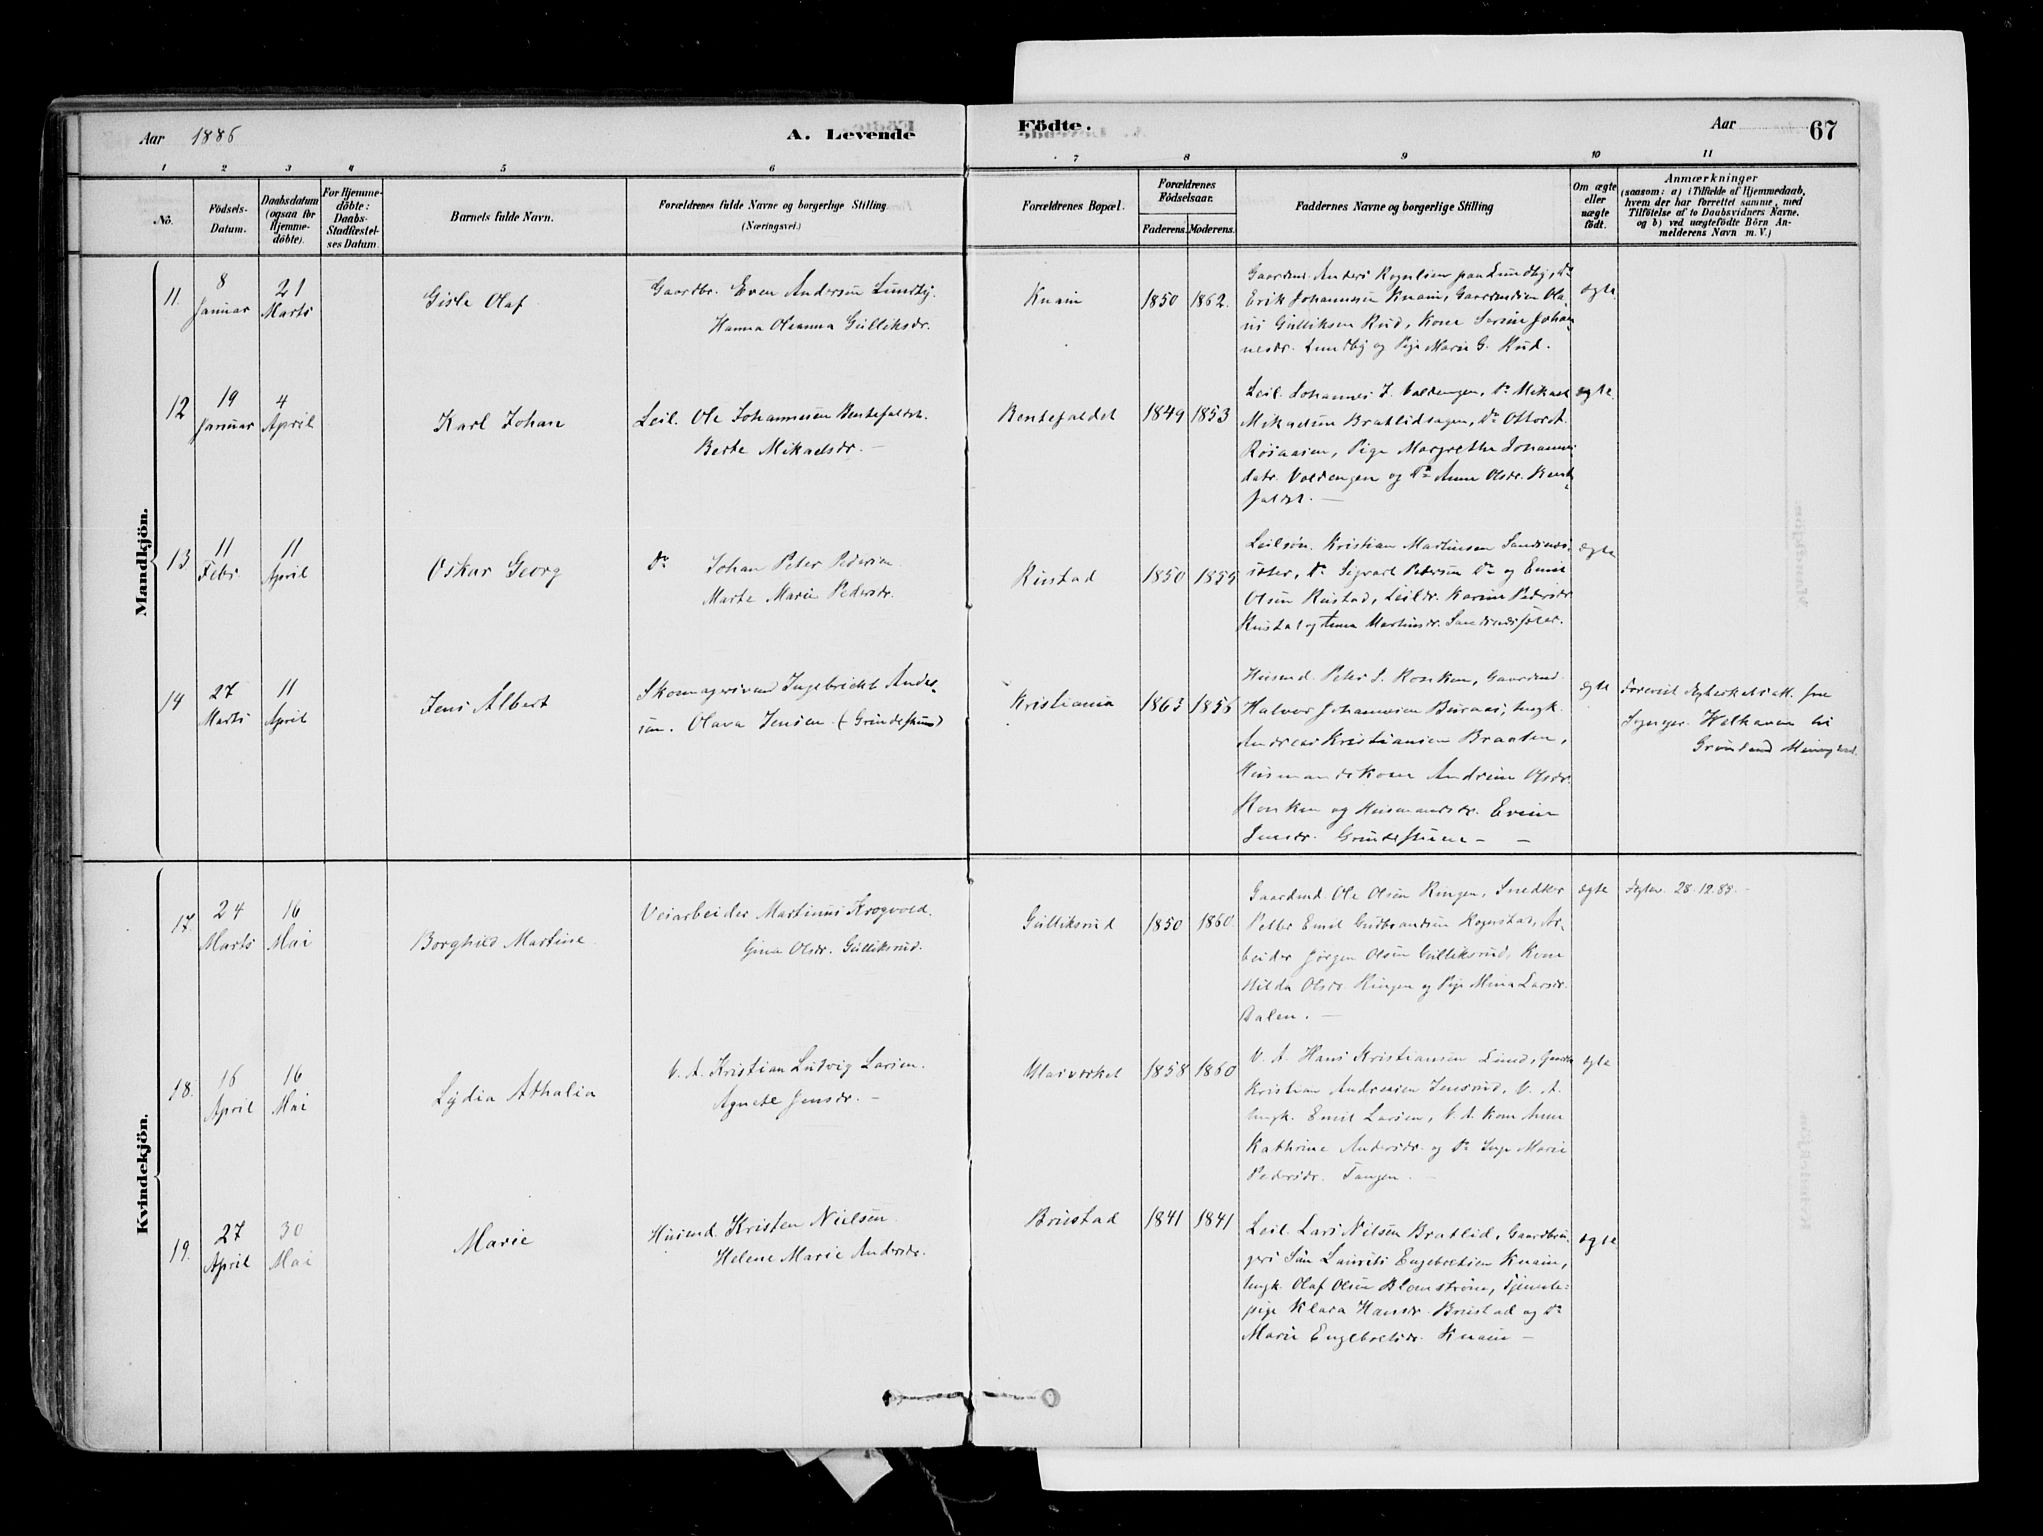 Aar 1886 A. Levende Födte. Aar 67
1 2 3 4 5 6 7 8 9 10 11
No. Födsels-Datum. Daabsdatum (ogsaa for Hjemme-döbte). For Hjemme-döbte: Daabs-Stadfæstel-ses Datum. Barnets fulde Navn. Forældrenes fulde Navne og borgerlige Stilling (Næringsvei.) Forældrenes Bopæl. Forældrenes Födselsaar. Faderens. Moderens. Faddernes Navne og borgerlige Stilling Om ægte eller uægte födt. Anmærkninger (saasom: a) i Tilfælde af Hjemmedaab, hvem der har forrettet samme, med Tilföielse af to Daabsvidners Navne, og b) ved uægtefödte Börn An-melderens Navn m. V.)
Mandkjön.
11. 8 Januar 21 Marts
Gisle Olaf
Gaardbr. Even Andersen Lundby.
Hanna Oleanna Gulliksdr.
Knain 1850 1862.
Gaardmd. Anders Rognlien paa Lundby, Do
Erik Johannesen Knain, Gaardmdien Ola-
us Gulliksen Rud, Kone Sørine Johan-
nesdr. Lundby og Pige Marie G. Rud.
ægte
12 19 Januar 4 April
Karl Johan
Leil. Ole Johannesen Bentefaldet.
Berte Mikaelsdr. –
Bentefaldet 1849 1853
Leil. Johannes J. Voldengen, Do Mikael
Mikaelsen Bratlidhagen, Do Ottor A.
Røisaasen, Pige Margrethe Johannes
datr. Voldengen og Do Anne Olsdr. Bente
faldet. –
ægte
13 11 Febr. 11 April
Oskar Georg
Do Johan Peter Pedersen
Marte Marie Pedersdr.
Rustad 1850 1855
Leilsøn. Kristian Martinsen Sandnes-
sæter, Do Sigvart Petersen Do og Emil
Olsen Rustad, Leildr. Karine Pedersdr.
Rustad og Anna Martinsdr. Sandnessæter.
ægte
14 27 Marts 11 April
Jens Albert
Skomagersvend Ingebrickt Ander-
sen. Olava Jensen (Grindestuen)
Kristiania 1863 1856
Husmd. Peter S. Honken, Gaardmd.
Halvor Johannesen Buraas, Ungk.
Andreas Kristiansen Braaten,
Husmandskone Andrine Olsdr.
Honken og Husmandsdr. Evine
Jensdr. Grindestuen – –
ægte
Foreviist Ægteskabsatt. fra
Sognepr. Welhaven til
Grønland Menighed.
Kvindekjön.
17. 24 Marts 16 Mai
Borghild Martine
Veiarbeider Martinus Krogvold.
Gina Olsdr. Gulliksrud.
Gulliksrud 1850 1860
Gaardmd. Ole Olsen Ringen, Snedker
Petter Emil Gudbrandsen Rognstad, Ar-
beider Jørgen Olsen Gulliksrud, Kone
Hilda Olsdr. Ringen og Pige Mina Larsdr.
Dalen. –
ægte
Ægtev. 28.12.85. –
18. 16 April 16 Mai
Lydia Athalia
V. A. Kristian Ludvig Larsen.
Agnete Jensdr. –
Glasværket 1858 1860
V. A. Hans Kristiansen Lund, Gaardm.
Kristian Andreasen Jensrud, V. A.
Ungk. Emil Larsen, V. A. Kone Anne
Kathrine Andersdr. og Do Inge Marie
Pedersdr. Tangen. –
ægte
19. 27 April 30 Mai
Marie
Husmd. Kristen Nielsen
Helene Marie Andersdr.
Brustad 1841 1841
Leil. Lars Nilsen Bratlid, Gaardbru-
gers Søn Laurits Engebretsen Knain,
Ungk. Olaf Olsen Blomstrøm, Tjeneste-
pige Klara Hansdr. Brustad og Do
Marie Engebretsdr. Knain –
ægte